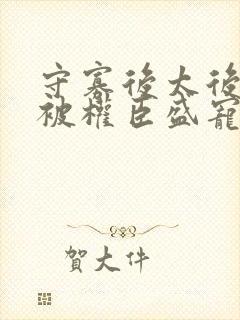 守寡後太後
被權臣盛寵
賀大件